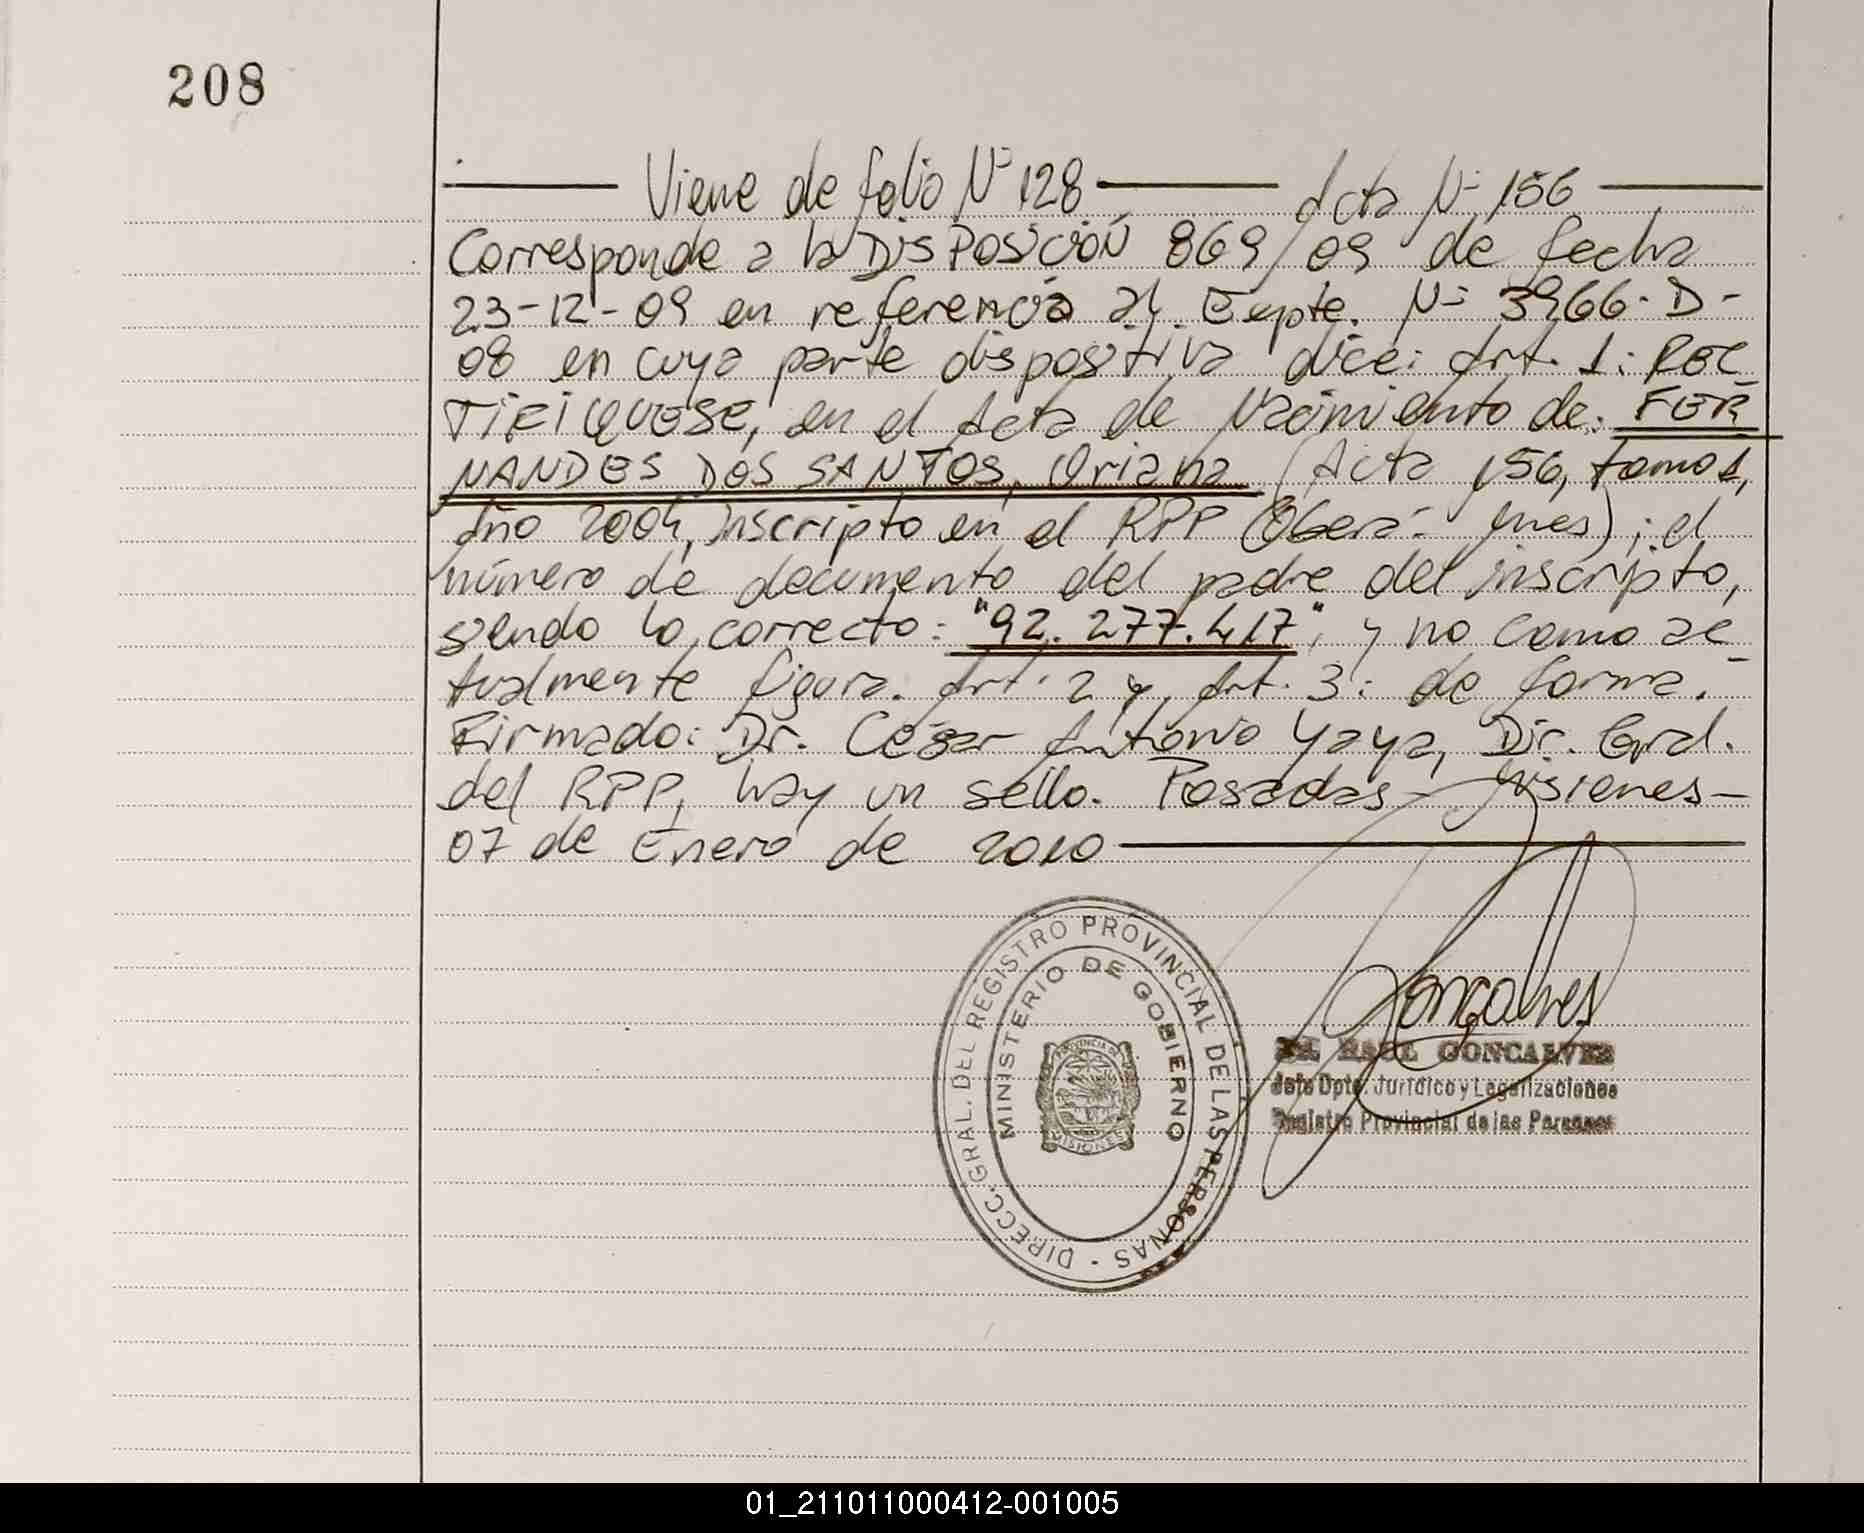 208
Viene de folio Nº 128 Acta Nº 156
Corresponde a la DISPOSICIÓN 869/09 de fecha
23-12-09 en referencia al Expte. Nº 3966-D-
08 en cuya parte dispositiva dice: Art. 1: REC
TIFIQUESE, en el Acta de Nacimiento de: FER
NANDES DOS SANTOS, Oriana (Acta 156, tomo 1,
Año 2004, inscripto en el RPP (Oberá- Mnes); el
número de documento del padre del inscripto,
siendo lo correcto: "92.277.417", y no como ac
tualmente figura. Art. 2 y Art. 3: de forma.-
Firmado: Dr. César Antonio Yaya, Dir. Gral.
del RPP, hay un sello. Posadas - Misiones-
07 de Enero de 2010
DIRECC. GRAL. DEL REGISTRO PROVINCIAL DE LAS PERSONAS -
MINISTERIO DE GOBIERNO
PROVINCIA DE
MISIONES
Goncalves
RAUL GONCALVES
Jefe Dpto. Jurídico y Legalizaciones
Registro Provincial de las Personas
01_211011000412-001005